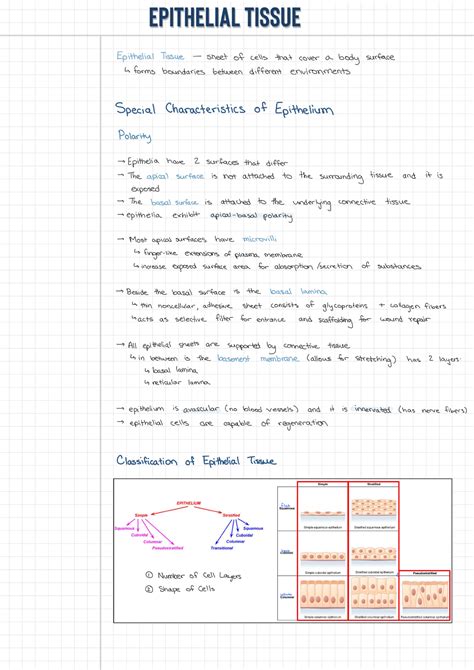 EPITHELIAL TISSUE
Epithelial Tissue — sheet of cells that cover a body surface
↳ forms boundaries between different environments
Special Characteristics of Epithelium
Polarity
→ Epithelia have 2 surfaces that differ
→ The apical surface is not attached to the surrounding tissue and it is
exposed
→ The basal surface is attached to the underlying connective tissue
→ epithelia exhibit apical-basal polarity
→ Most apical surfaces have microvilli
↳ finger-like extensions of plasma membrane
↳ increase exposed surface area for absorption/secretion of substances
→ Beside the basal surface is the basal lamina
↳ thin noncellular, adhesive sheet consists of glycoproteins + collagen fibers
↳ acts as selective filter for entrance and scaffolding for wound repair
→ All epithelial sheets are supported by connective tissue
↳ in between is the basement membrane (allows for stretching) has 2 layers:
↳ basal lamina
↳ reticular lamina
→ epithelium is avascular (no blood vessels) and it is innervated (has nerve fibers)
→ epithelial cells are capable of regeneration
Classification of Epithelial Tissue
EPITHELIUM
Simple Stratified
Squamous
Cuboidal
Columnar
Pseudostratified
Squamous
Cuboidal
Columnar
Transitional
① Number of Cell Layers
② Shape of Cells
Simple Stratified
Squamous
Simple squamous epithelium Stratified squamous epithelium
Simple cuboidal epithelium Stratified cuboidal epithelium
Columnar
Pseudostratified
Simple columnar epithelium Stratified columnar epithelium